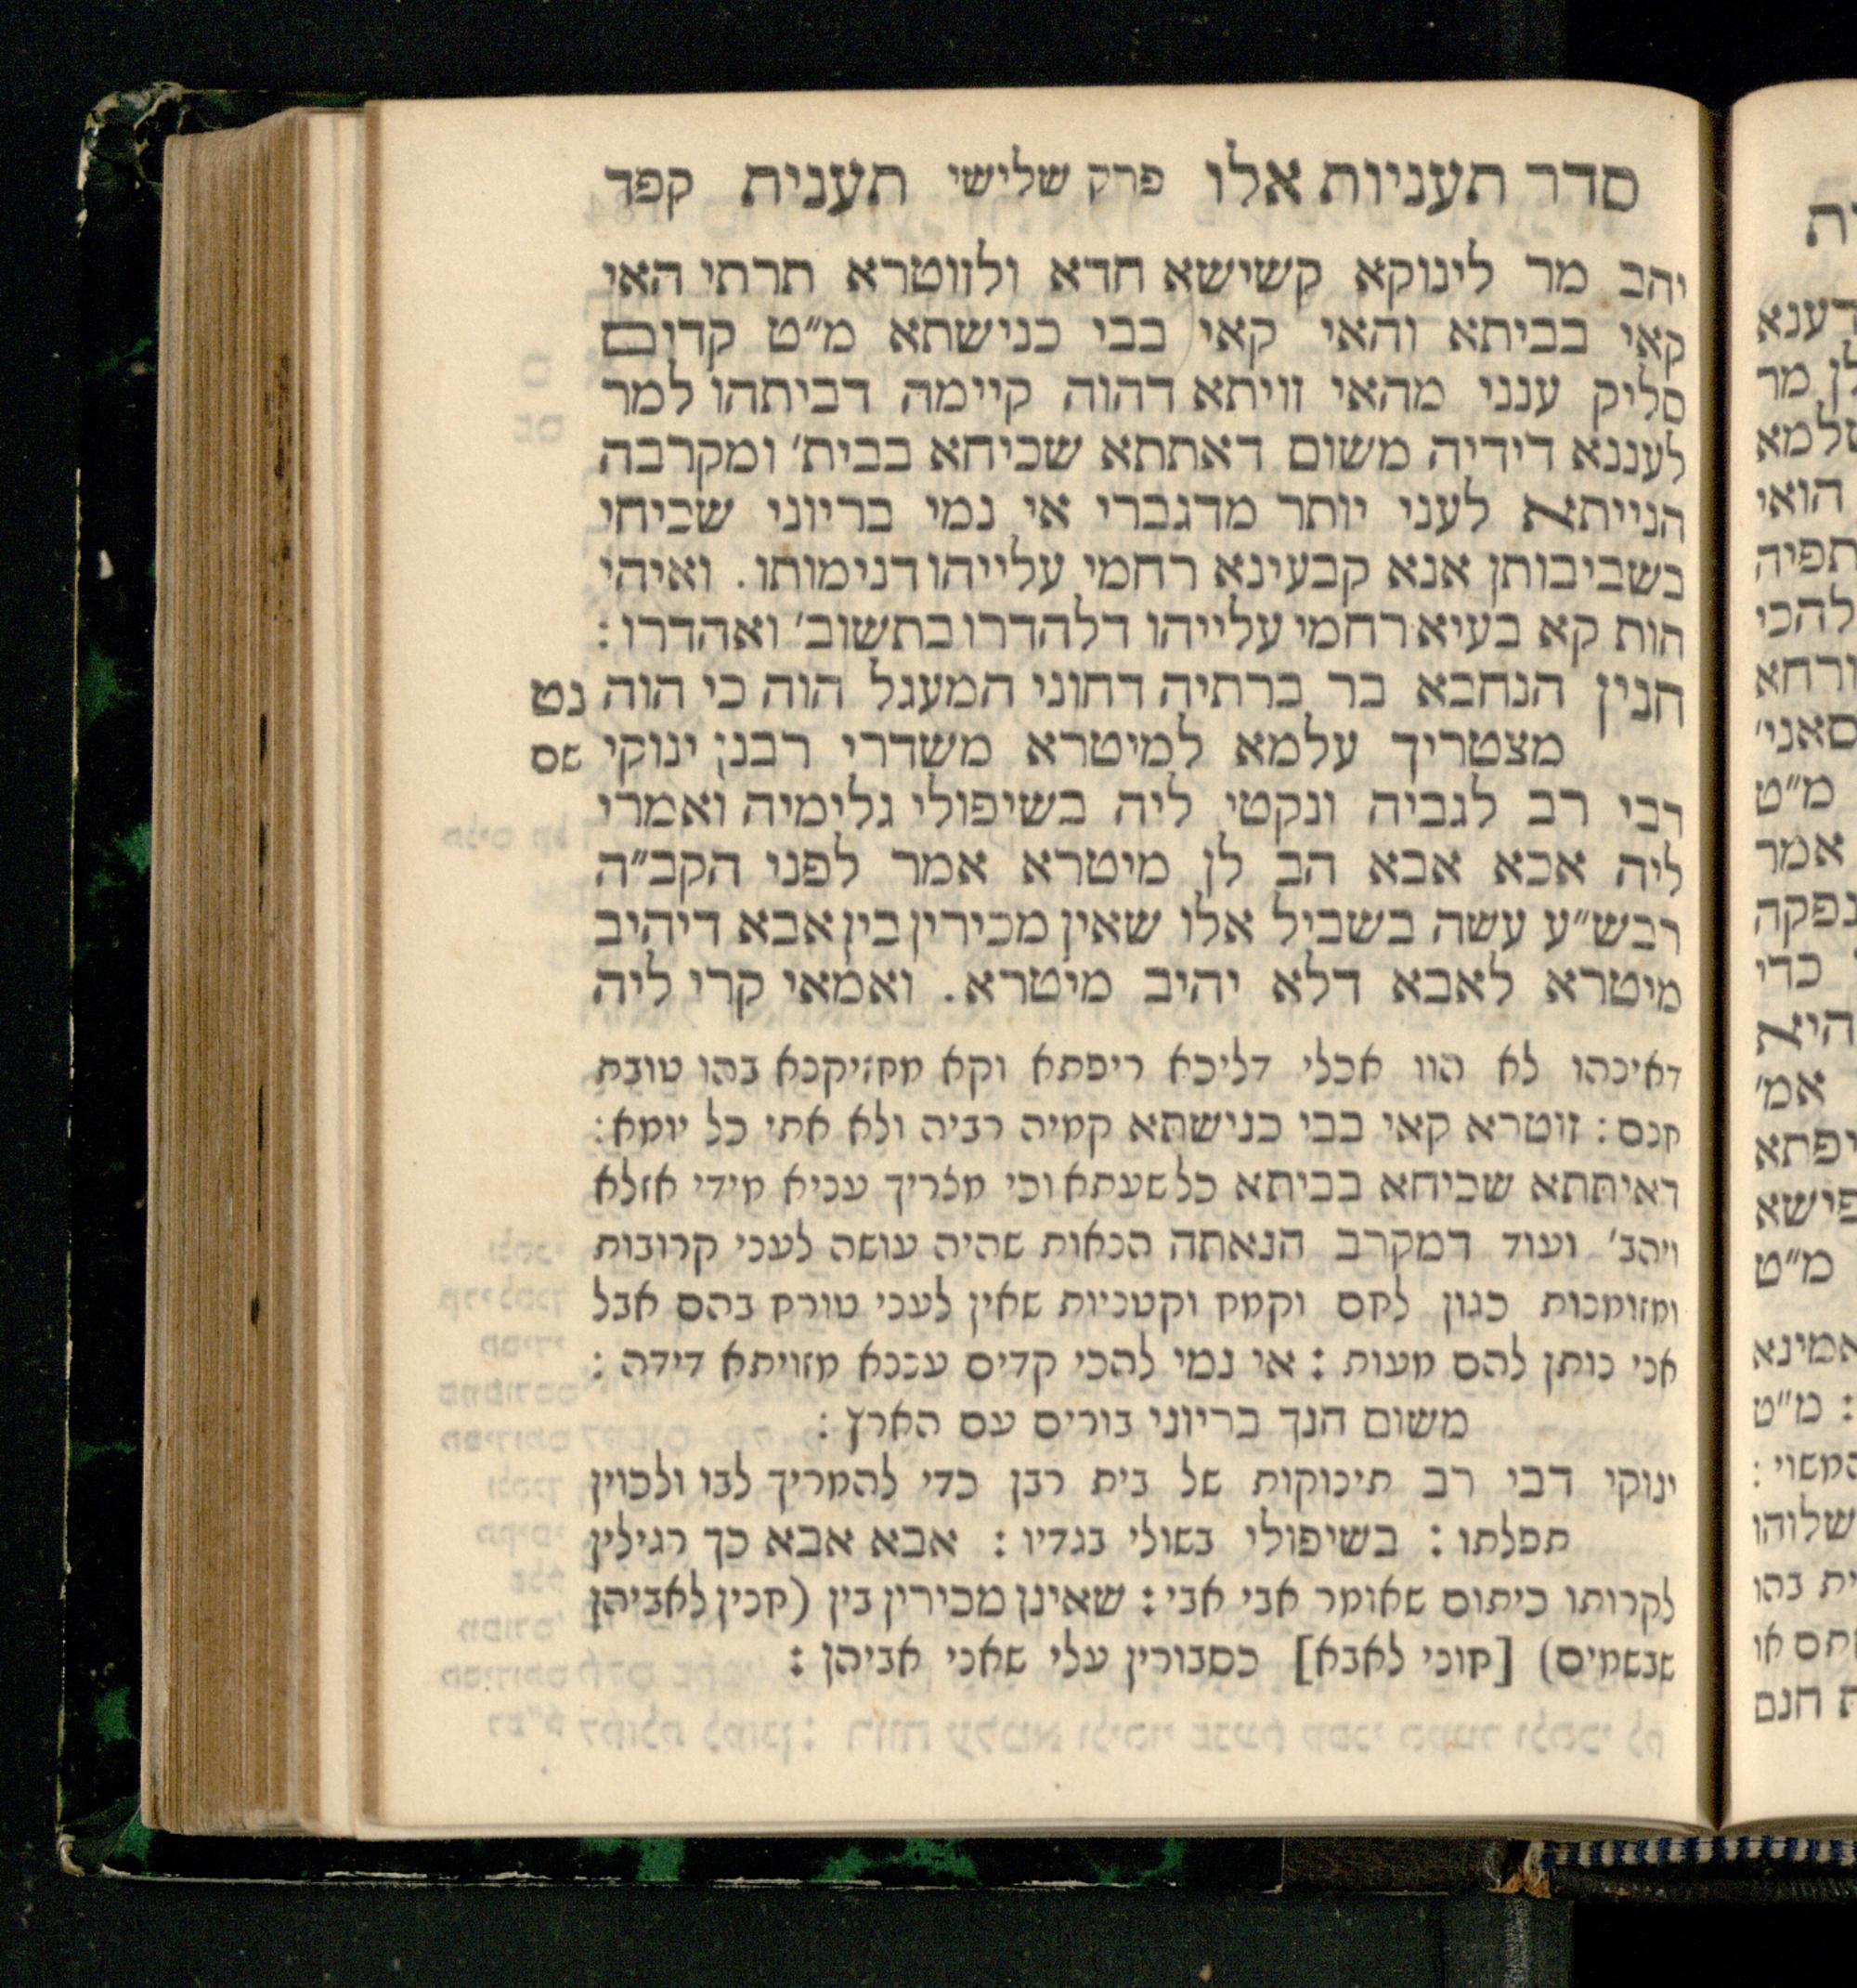 סדר תעניות אלו פרק שלישי תענית קפד
יהב מר לינוקא קשישא חדא ולזוטרא תרתי האי
קאי בביתא והאי קאי בבי כנישתא מ"ט קדום
סליק ענני מהאי זויתא דהוה קיימה דביתהו למר
לעננא דידיה משום דאתתא שכיחא בבית' ומקרבה
הנייתא לעני יותר מדגברי אי נמי בריוני שכיחי
בשביבותן אנא קבעינא רחמי עלייהו דנימותו. ואיהי
הות קא בעיא רחמי עלייהו דלהדרו בתשוב' ואהדרו:
חנין הנחבא בר ברתיה דחוני המעגל הוה כי הוה נט
מצטריך עלמא למיטרא משדרי רבנן ינוקי שם
דבי רב לגביה ונקטי ליה בשיפולי גלימיה ואמרי
ליה אבא אבא הב לן מיטרא אמר לפני הקב"ה
רבש"ע עשה בשביל אלו שאין מכירין בין אבא דיהיב
מיטרא לאבא דלא יהיב מיטרא. ואמאי קרי ליה
דאינהו לא הוו אכלי דליכא ריפתא וקא מחזיקנא בהו טובת
חנם: זוטרא קאי בבי כנישתא קמיה רביה ולא אתי כל יומא:
דאיתתא שכיחא בביתא כל שעתא וכי מצריך עניא מידי אזלא
ויהב' ועוד דמקרב הנאתה הנאות שהיה עושה לעני קרובות
ומזומנות כגון לחם וקמח וקטניות שאין לעני טורח בהם אבל
אני נותן להם מעות: אי נמי להכי קדים עננא מזויתא דידה:
משום הנך בריוני בורים עם הארץ:
ינוקי דבי רב תינוקות של בית רבן כדי להמריך לבו ולכוין
תפלתו: בשיפולי בשולי בגדיו: אבא אבא כך רגילין
לקרותו כיתום שאומר אבי אבי: שאינן מכירין בין (חנין לאביהן
שבשמים) [חוני לאבא] כסבורין עלי שאני אביהן: